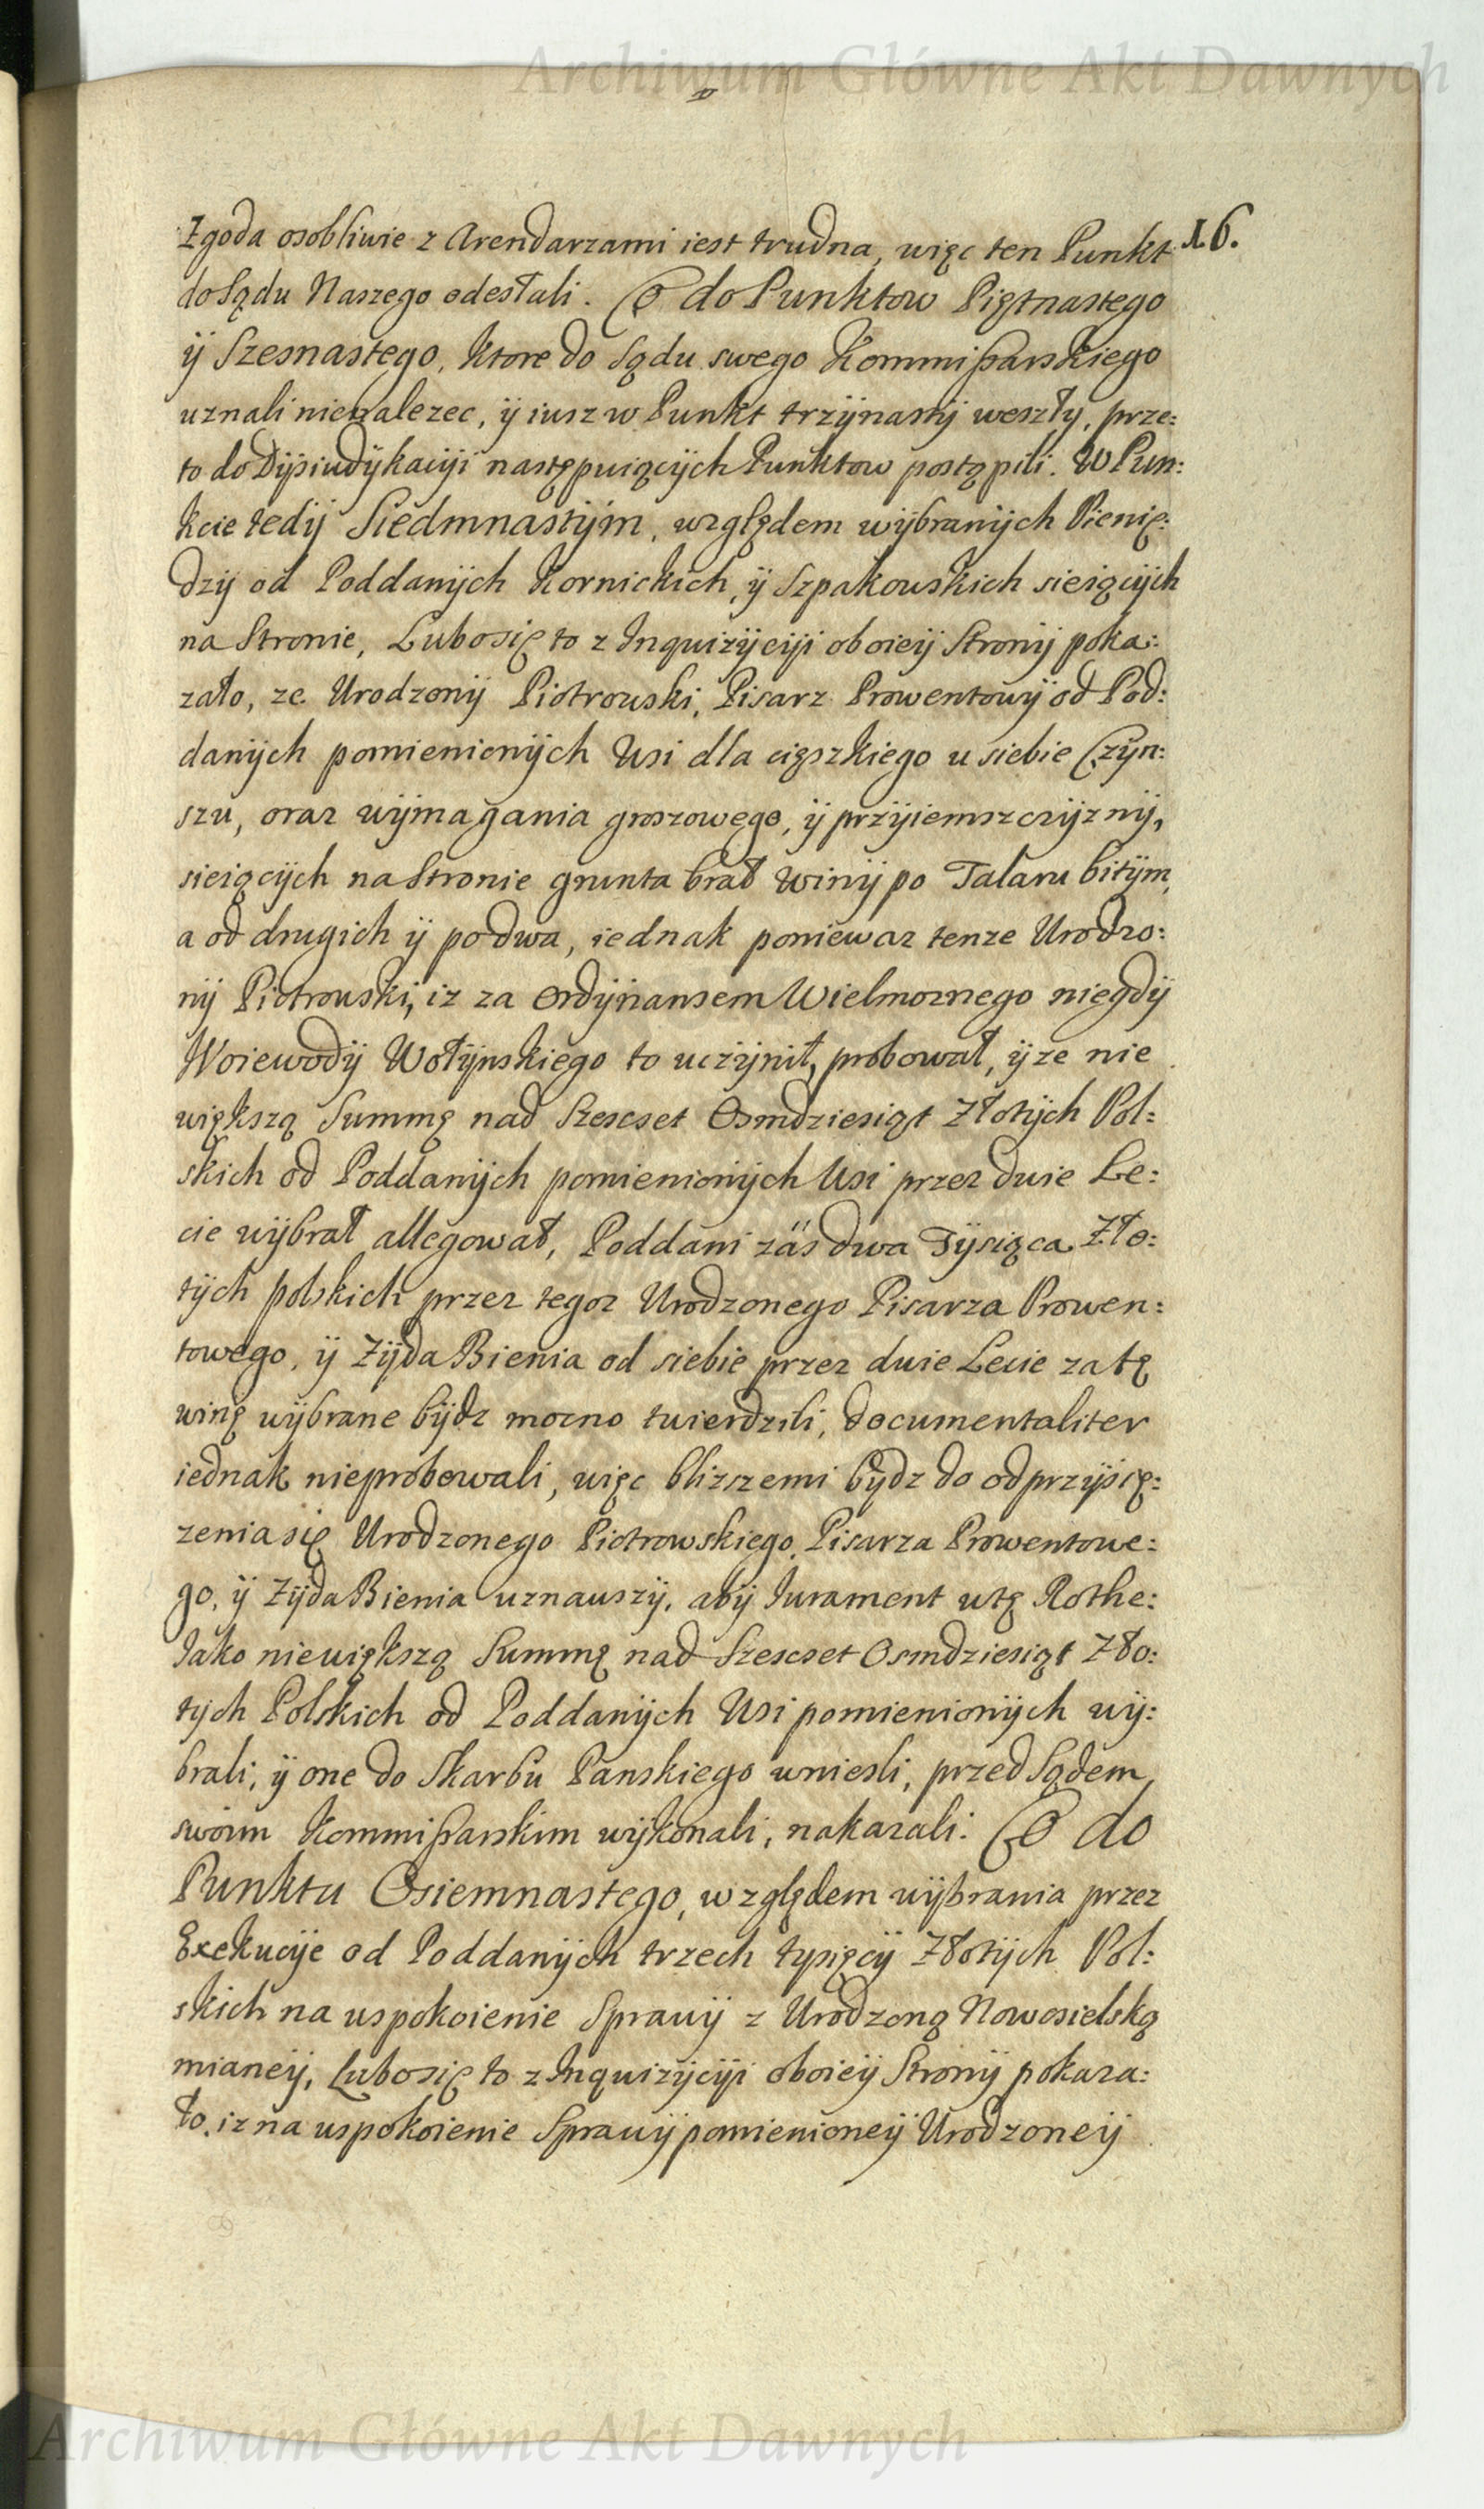 Archiwum Główne Akt Dawnych
16.
Zgoda osobliwie z Arendarzami iest trudna, więc ten Punkt
do Sądu Naszego odesłali. Co do Punktow Piętnastego
ÿ Szesnastego, ktore do Sądu swego Kommißarskiego
uznali nienalezec, ÿ iusz w Punkt trzÿnastÿ weszłÿ, prze:
to do Dÿsiudÿkacÿi następuiącÿch Punktow postąpili. W Pun:
kcie tedÿ Siedmnastÿm, względem wÿbranÿch Pienię:
dzÿ od Poddanÿch Kornickich, ÿ Szpakowskich sieiącÿch
na Stronie, Lubo się to z Inquizÿcÿi oboieÿ Stronÿ poka:
zało, ze Urodzonÿ Piotrowski, Pisarz Prowentowÿ od Pod:
danÿch pomienionÿch Wsi dla cięszkiego u siebie Czÿn:
szu, oraz wÿmagania groszowego, ÿ przÿiemszczÿznÿ,
sieiącÿch na Stronie grunta brał winÿ po Talaru bitÿm,
a od drugich ÿ po dwa, iednak poniewaz tenze Urodzo:
nÿ Piotrowski, iz za Ordÿnansem Wielmoznego niegdÿ
Woiewodÿ Wołÿnskiego to uczÿnił, probował, ÿ ze nie
większą Summę nad Szescset Osmdziesiąt Złotÿch Pol:
skich od Poddanÿch pomienionÿch Wsi przez dwie Le:
cie wÿbrał allegował, Poddani zas dwa Tÿsiąca Zło:
tÿch polskich przez tegoz Urodzonego Pisarza Prowen:
towego, ÿ Zÿda Bienia od siebie przez dwie Lecie za tę
winę wÿbrane bÿdz mocno twierdzili, documentaliter
iednak nieprobowali, więc blizszemi bÿdz do odprzÿsię:
zenia się Urodzonego Piotrowskiego, Pisarza Prowentowe:
go, ÿ Zÿda Bienia uznawszÿ, abÿ Iurament w tę Rothe:
Iako niewiększą Summę nad Szescset Osmdziesiąt Zło:
tych Polskich od Poddanÿch Wsi pomienionÿch wÿ:
brali, ÿ one do Skarbu Panskiego wniesli, przed Sądem
swoim Kommißarskim wÿkonali, nakazali. Co do
Punktu Osiemnastego, względem wÿbrania przez
Exekucÿe od Poddanÿch trzech tysięcÿ Złotÿch Pol:
skich na uspokoienie Sprawÿ z Urodzoną Nowosielską
mianeÿ, Lubo się to z Inquizÿcÿi oboieÿ Stronÿ pokaza:
ło, iz na uspokoienie Sprawÿ pomienioneÿ Urodzoneÿ
Archiwum Główne Akt Dawnych